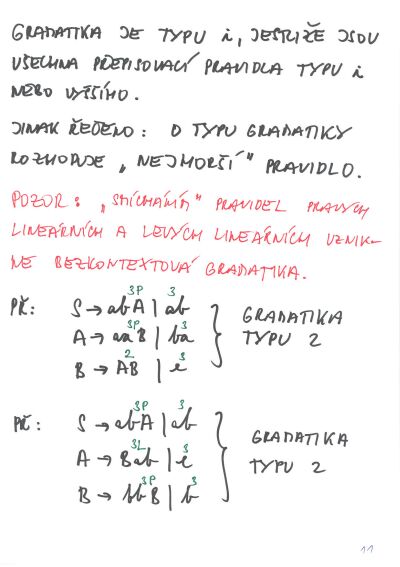 GRAMATIKA JE TYPU i, JESTLIŽE JSOU
VŠECHNA PŘEPISOVACÍ PRAVIDLA TYPU i
NEBO VYŠŠÍHO.
JINAK ŘEČENO: O TYPU GRAMATIKY
ROZHODUJE „NEJHORŠÍ" PRAVIDLO.
POZOR: „SMÍCHÁNÍM" PRAVIDEL PRAVÝCH
LINEÁRNÍCH A LEVÝCH LINEÁRNÍCH VZNIK-
NE BEZKONTEXTOVÁ GRAMATIKA.
PŘ: S → abA | ab 3P 3
A → aaB | ba 3P 3
B → AB | e 2 3
GRAMATIKA
TYPU 2
PŘ: S → abA | ab 3P 3
A → Bab | e 3L 3
B → bbB | b 3P 3
GRAMATIKA
TYPU 2
11